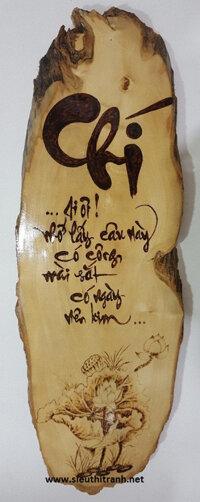 Chí
... Ai ơi!
nhớ lấy câu này
có công
mài sắt
có ngày
nên kim ...
www.sieuthitranh.net